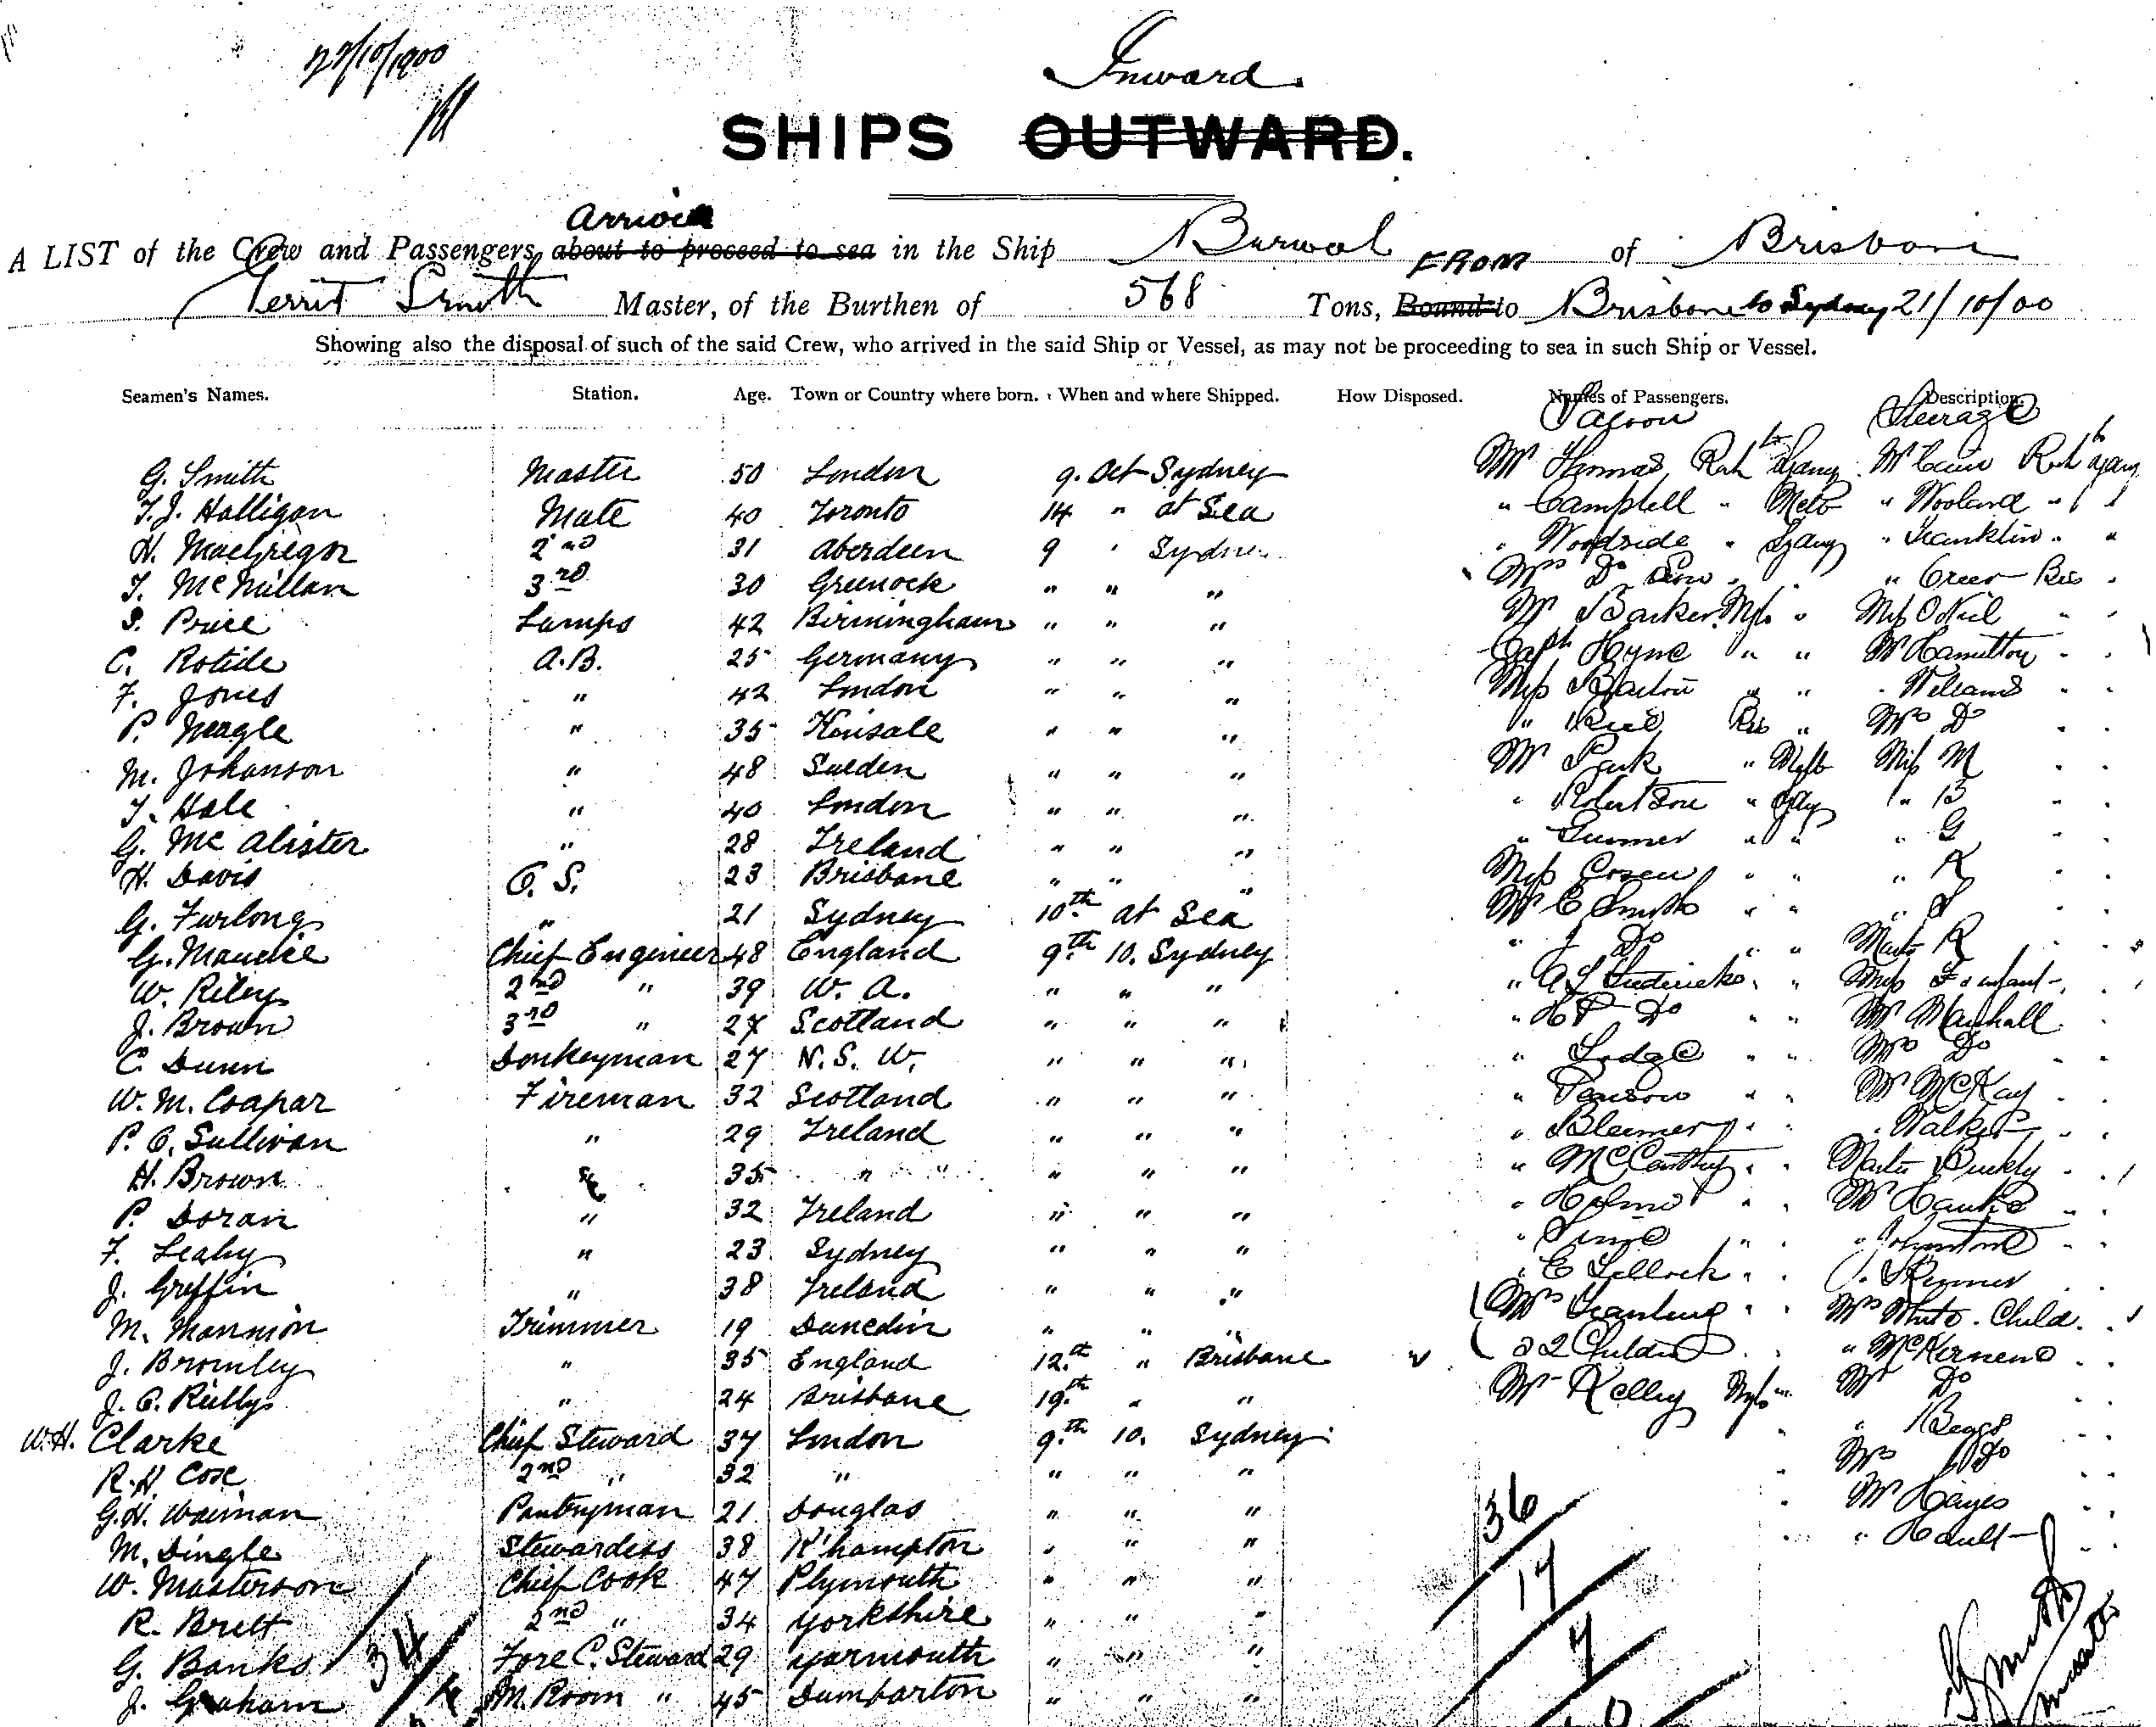 22/10/1900
Inward
SHIPS OUTWARD.
Arrived
A LIST of the Crew and Passengers about to proceed to sea in the Ship Burwah FROM of Brisbane
Gerrit Smith Master, of the Burthen of 568 Tons, Bound to Brisbane to Sydney 21/10/00
Showing also the disposal of such of the said Crew, who arrived in the said Ship or Vessel, as may not be proceeding to sea in such Ship or Vessel.
Seamen's Names. Station. Age. Town or Country where born. When and where Shipped. How Disposed. Names of Passengers. Description.
Saloon Steerage
G. Smith Master 50 London 9. Oct Sydney Mr Thomas Rock to Sydney Mr Rock to Sydney
T.J. Halligan Mate 40 Toronto 14 " at Sea " Campbell " Melb " Wooland "
H. MacGregor 2nd 31 Aberdeen 9 " Sydney " Woodside " Sydney " Franklin " "
T. McMillan 3rd 30 Greenock " " " Mrs Do " Greer Bris
S. Price Lamps 42 Birmingham " " " Mr Barker " Miss O'Neil
C. Rotide A.B. 25 Germany " " " Capt Hyne " " Mr Hamilton
F. Jones " 42 London " " " Miss Barton " " " Williams
P. Neagle " 35 Kinsale " " " " Bris " Mrs Do
M. Johanson " 48 Sweden " " " Mr Park " Melb Miss M
T. Hale " 40 London " " " " Robertson " Sydy " B
G. McAlister " 28 Ireland " " " " Gunner " " " G
H. Davis O.S. 23 Brisbane " " " Miss Cosen " " " K
G. Furlong " 21 Sydney 10th at Sea Mr E Smith " " " S
G. Maurice Chief Engineer 48 England 9th 10. Sydney " J Do " " Mast R
W. Riley 2nd " 39 W. A. " " " " A L Fredericks " " Miss F & infant
J. Brown 3rd " 27 Scotland " " " " H P Do " " Mr Marshall
C. Dunn Donkeyman 27 N. S. W. " " " " Lodge " " Mrs Do
W. M. Coapar Fireman 32 Scotland " " " " Pearson " " Mr McKay
P. O. Sullivan " 29 Ireland " " " " " Walker
H. Brown " 35 " " " " " " McCarthy " " Master Buckly
P. Doran " 32 Ireland " " " " Holmes " " Mr Hawke
F. Leahy " 23 Sydney " " " " " " Johnstone
J. Griffin " 38 Ireland " " " " E " " Skinner
M. Mannion Trimmer 19 Dunedin " " " Mrs " " Mrs White. Child.
J. Bromley " 35 England 12th " Brisbane & 2 Children " McKernan
J. O. Reilly " 24 Brisbane 19th " " Mr Kelley Mr Do
W.H. Clarke Chief Steward 37 London 9th 10. Sydney " Beggs
R.H. Cose 2nd " 32 " " " " Mrs Do
G.H. Waiman Pantryman 21 Douglas " " " Mr Hayes
M. Dingle Stewardess 38 R'hampton " " " " Hault
W. Masterson Chief Cook 47 Plymouth " " "
R. Brett 2nd " 34 Yorkshire " " "
G. Banks Fore C. Steward 29 Yarmouth " " "
J. Graham M. Room " 45 Dumbarton " " "
34
36
17
G Smith
Master